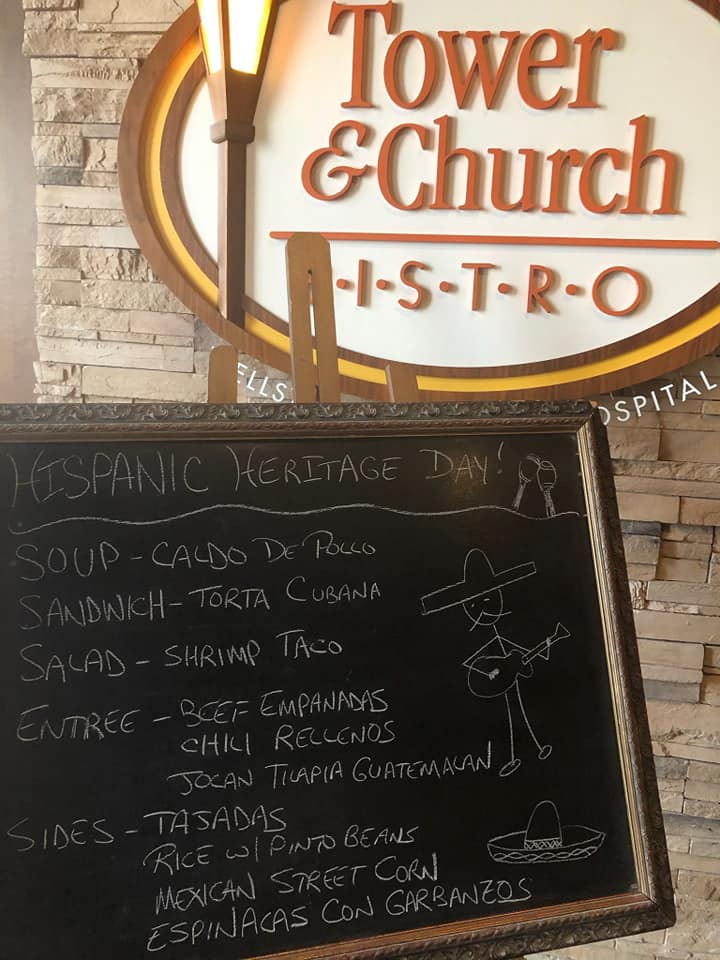 Tower
& Church
·I·S·T·R·O
ELLS
OSPITAL
HISPANIC HERITAGE DAY!
SOUP - CALDO DE POLLO
SANDWICH - TORTA CUBANA
SALAD - SHRIMP TACO
ENTREE - BEEF EMPANADAS
CHILI RELLENOS
JOCAN TILAPIA GUATEMALAN
SIDES - TAJADAS
RICE W/ PINTO BEANS
MEXICAN STREET CORN
ESPINACAS CON GARBANZOS